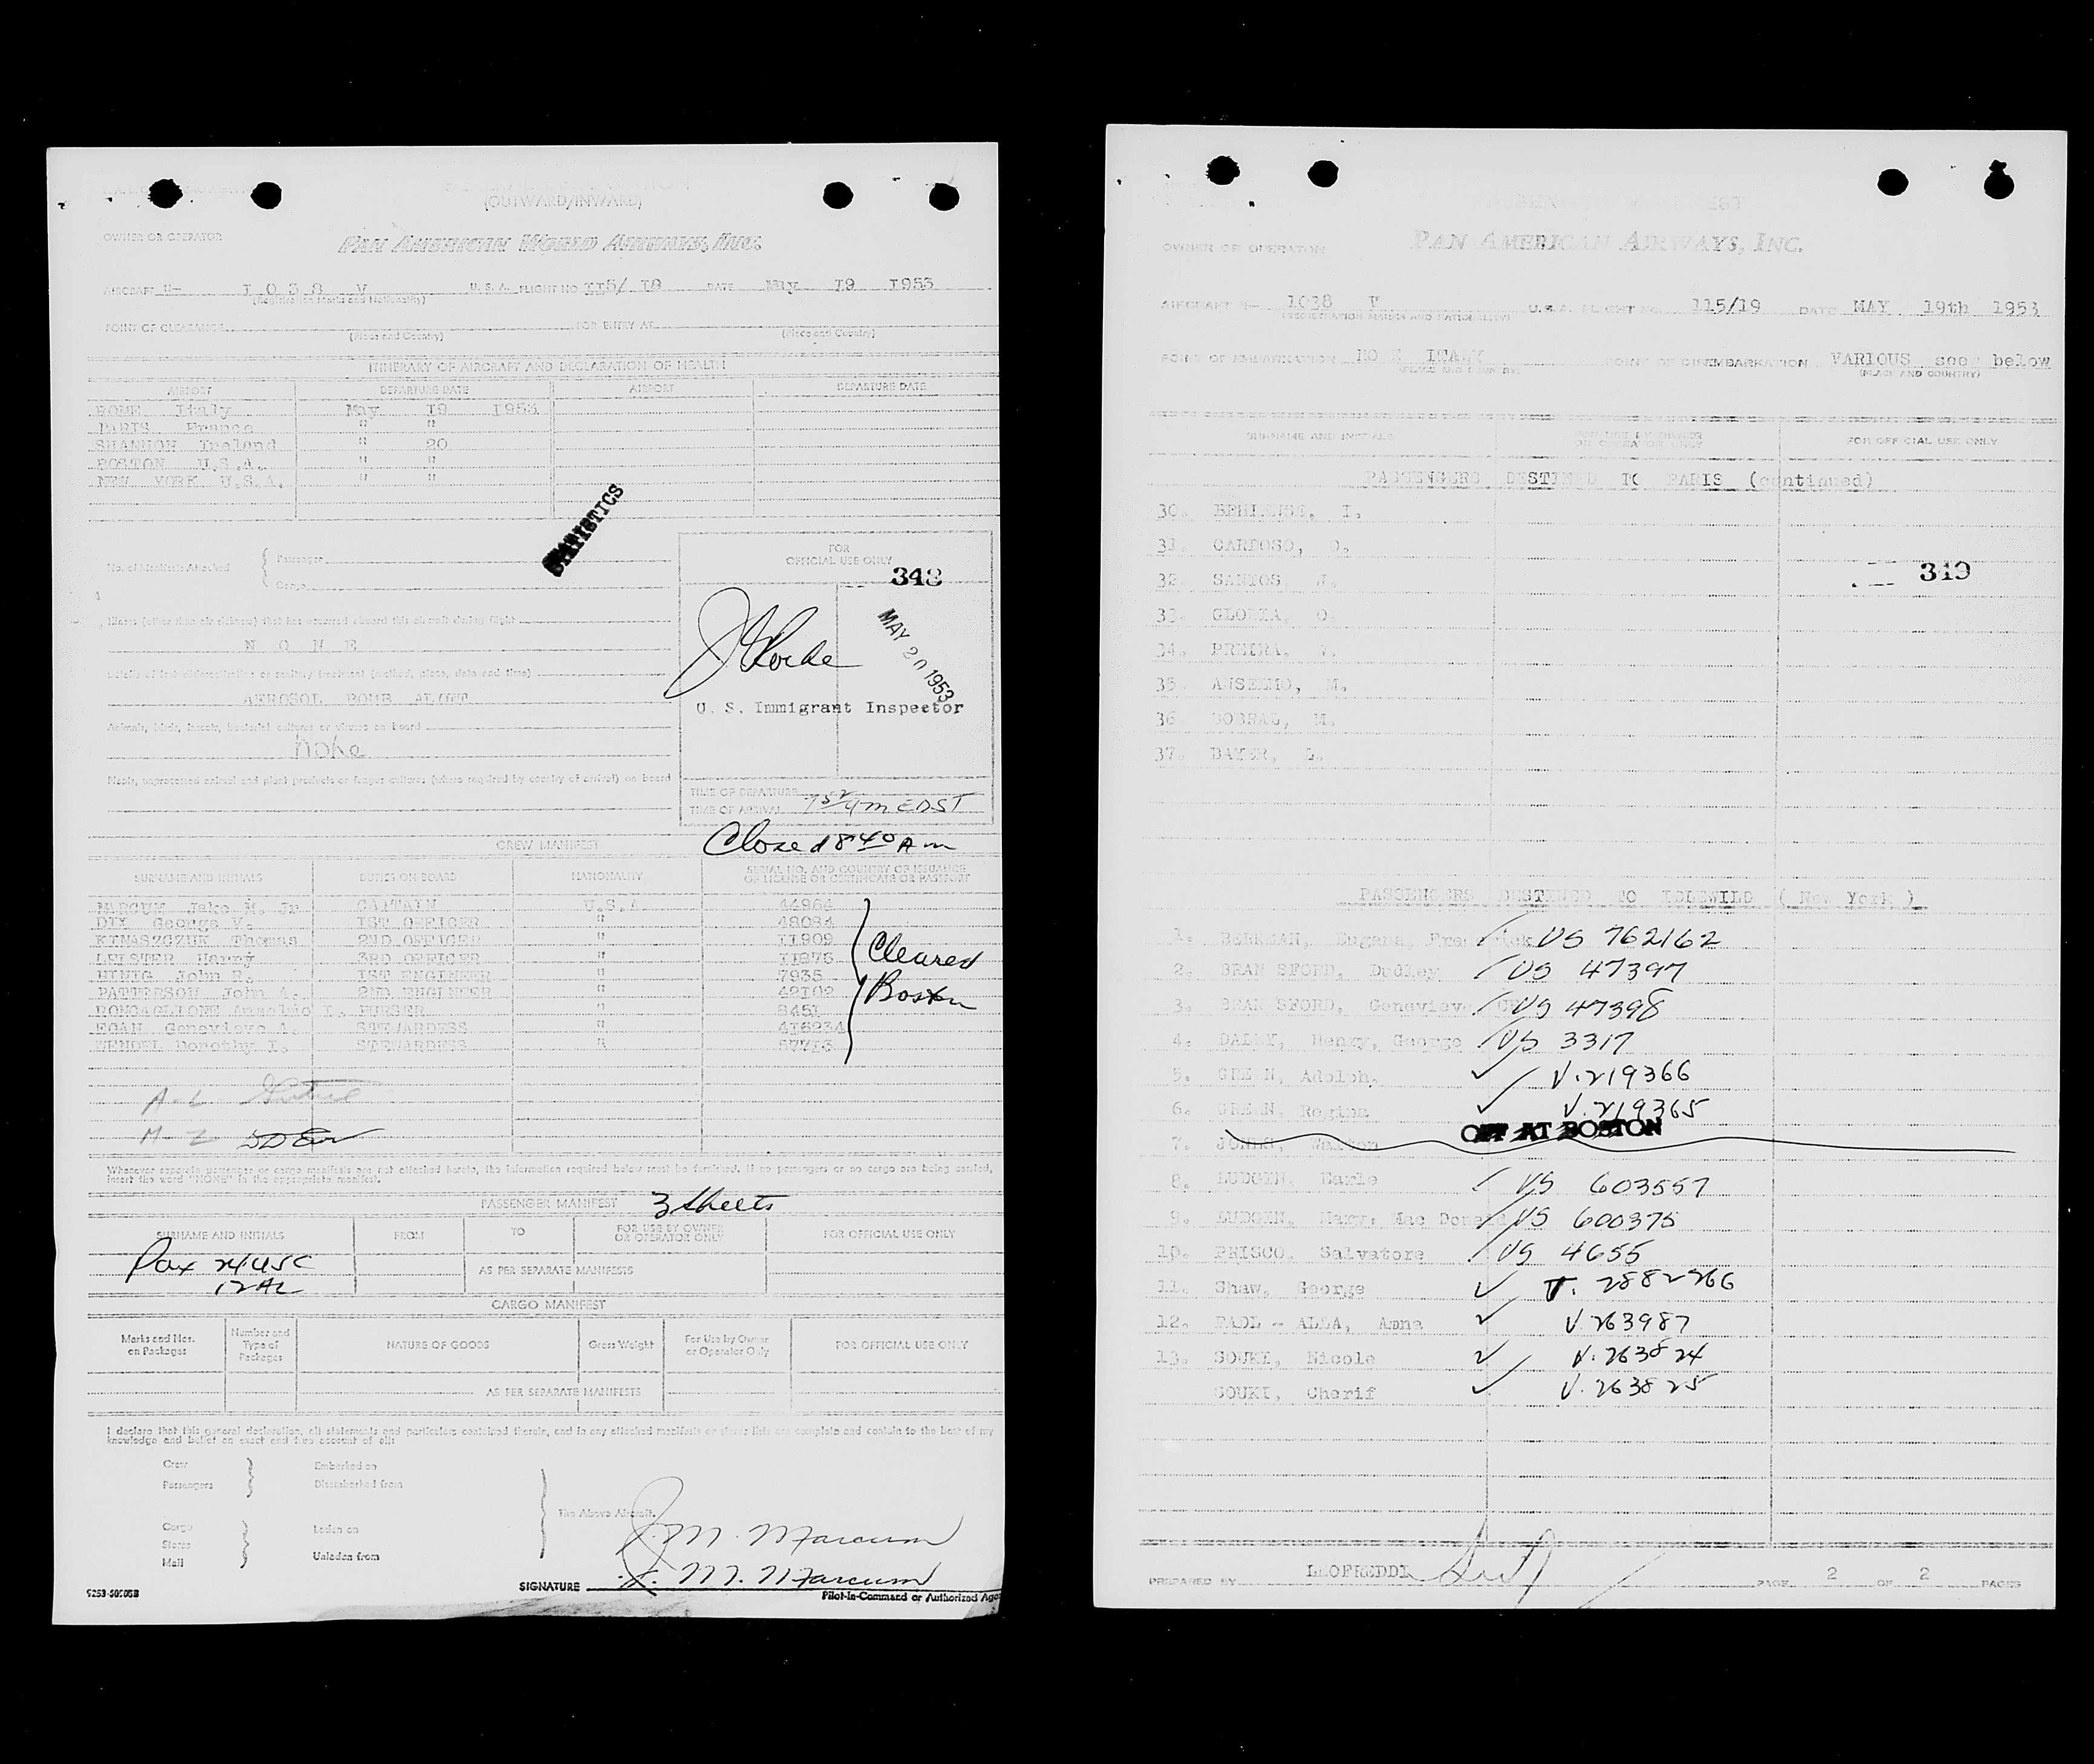 (OUTWARD/INWARD)
OWNER OR OPERATOR PAN AMERICAN WORLD AIRWAYS, INC.
AIRCRAFT N- I 0 3 8 V U. S. A. FLIGHT NO II5/ I8 DATE May I9 I953
(Registration Marks and Nationality)
POINT OF CLEARANCE FOR ENTRY AT
(Place and Country) (Place and Country)
ITINERARY OF AIRCRAFT AND DECLARATION OF HEALTH
AIRPORT DEPARTURE DATE AIRPORT DEPARTURE DATE
ROME Italy May I9 I953
PARIS France " "
SHANNON Ireland " 20
BOSTON U.S.A. " "
NEW YORK U.S.A. " "
STATISTICS
No. of Manifests Attached { Passenger
Cargo
FOR
OFFICIAL USE ONLY
348
MAY 20 1953
U. S. Immigrant Inspector
Illness (other than air sickness) that has occurred aboard this aircraft during flight
N O N E
Details of last disinsectization or sanitary treatment (method, place, date and time)
AEROSOL BOMB ALOFT
Animals, birds, insects, bacterial cultures or viruses on board
None
Plants, unprocessed animal and plant products or fungus cultures (where required by country of arrival) on board
TIME OF DEPARTURE
TIME OF ARRIVAL 7 52 am EDST
Closed 8 40 Am
CREW MANIFEST
SURNAME AND INITIALS DUTIES ON BOARD NATIONALITY SERIAL NO. AND COUNTRY OF ISSUANCE
OF LICENSE OR CERTIFICATE OR PASSPORT
MARCUM Jake M. Jr CAPTAIN U.S.A. 44964
DIX George V. IST OFFICER " 48084
KINASZCZUK Thomas 2ND OFFICER " II909
LEISTER Harry 3RD OFFICER " II875
HINIG John R. IST ENGINEER " 7935
PATTERSON John A. 2ND ENGINEER " 42I02
RONCAGLIONE Anselmo I. PURSER " 845I
EGAN Genevieve A. STEWARDESS " 4I6234
WENDEL Dorothy I. STEWARDESS " 577I3
Cleared
Boston
A-L
M-Z
Whenever separate passenger or cargo manifests are not attached hereto, the information required below must be furnished. If no passengers or no cargo are being carried,
insert the word "NONE" in the appropriate manifest.
PASSENGER MANIFEST 3 sheets
SURNAME AND INITIALS FROM TO FOR USE BY OWNER
OR OPERATOR ONLY FOR OFFICIAL USE ONLY
Pax 24 USC
12 AL
AS PER SEPARATE MANIFESTS
CARGO MANIFEST
Marks and Nos.
on Packages Number and
Type of
Packages NATURE OF GOODS Gross Weight For Use by Owner
or Operator Only FOR OFFICIAL USE ONLY
AS PER SEPARATE MANIFESTS
I declare that this general declaration, all statements and particulars contained therein, and in any attached manifests or stores lists are complete and contain to the best of my
knowledge and belief an exact and true account of all:
Crew Embarked on
Passengers Disembarked from
The Above Aircraft.
Cargo Laden on
Stores
Mail Unladen from
J. M. Marcum
SIGNATURE J. M. Marcum
Pilot-in-Command or Authorized Age
PASSENGER MANIFEST
OWNER OR OPERATOR PAN AMERICAN AIRWAYS, INC.
AIRCRAFT N- 1038 V U.S.A. FLIGHT NO. 115/19 DATE MAY 19th 1953
(REGISTRATION MARKS AND NATIONALITY)
POINT OF EMBARKATION ROME ITALY POINT OF DISEMBARKATION VARIOUS see below
(PLACE AND COUNTRY) (PLACE AND COUNTRY)
SURNAME AND INITIALS FOR USE BY OWNER
OR OPERATOR ONLY FOR OFFICIAL USE ONLY
PASSENGERS DESTINED TO PARIS (continued)
30. I.
31. CARDOSO, O.
349
32. SANTOS, J.
33. GLORIA, O.
34.
35. ANSELMO, M.
36. SOBRAL, M.
37. BAYER, L.
PASSENGERS DESTINED TO IDLEWILD ( New York )
1. BERKMAN, Eugene, Frederick US 762162
2. BRAN SFORD, Dudley US 47397
3. BRAN SFORD, Genevieve US 47398
4. Henry, George US 3317
5. GREEN, Adolph, V. 219366
6. GREEN, Regina V. 219365
OFF AT BOSTON
7. JONES, Walton
8. LUDGIN, Earle US 603557
9. LUDGIN, Mary, Mac Donald US 600375
10. PRISCO, Salvatore US 4655
11. Shaw, George T. 2882266
12. FADL - ALLA, Anna V. 263987
13. SOUKI, Nicole V. 263824
SOUKI, Cherif V. 263825
PREPARED BY LEOFREDDI PAGE 2 OF 2 PAGES